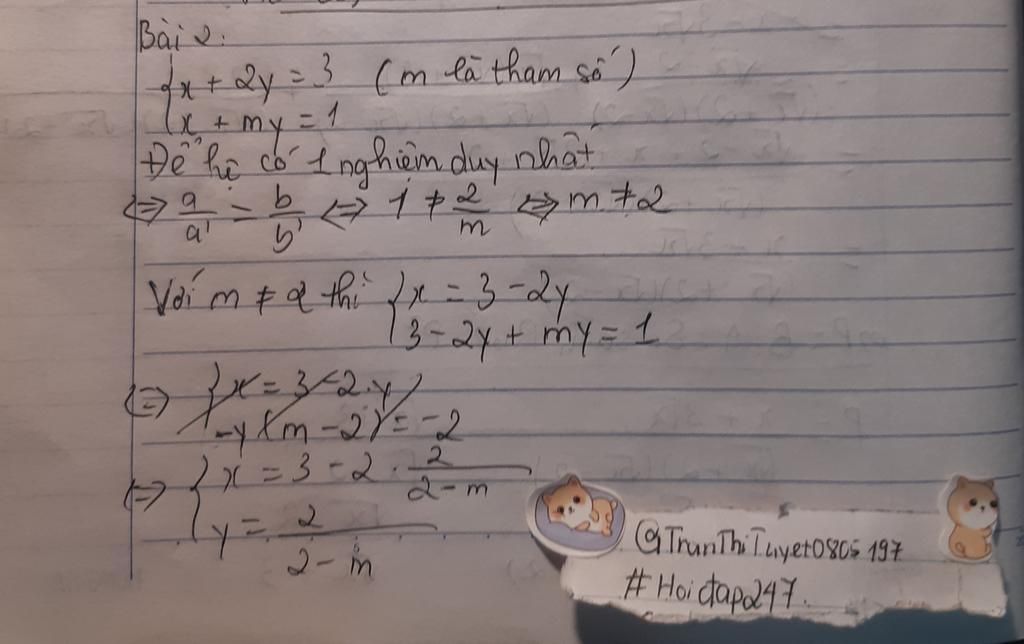 Bài 2:
{x + 2y = 3 (m là tham số)
{x + my = 1
Để hệ có 1 nghiệm duy nhất
⇔ a/a' = b/b' ⇔ 1 ≠ 2/m ⇔ m ≠ 2
Với m ≠ 2 thì {x = 3 - 2y
{3 - 2y + my = 1
⇔ {x = 3 - 2.y
-y(m - 2) = -2
⇔ {x = 3 - 2 . 2/(2 - m)
{y = 2/(2 - m)
@TranThiTuyet0805197
#Hoidap247.